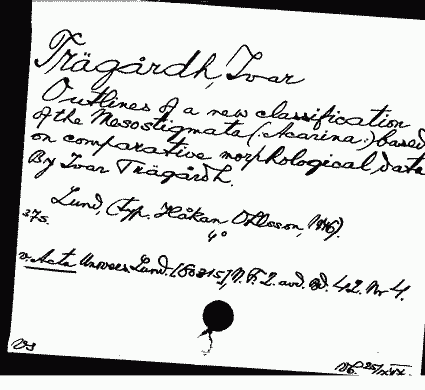 Trägårdh, Ivar
Outlines of a new classification
of the Mesostigmata (Acarina.) based
on comparative morphological data
By Ivar Trägårdh.
Lund, (Typ. Håkan Ohlsson, 1946).
37s. 4°
v. Acta Univers. Lund. N. F. 2. avd. Bd. 42. Nr 4.